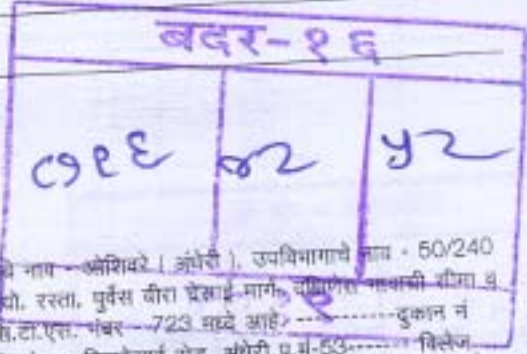 बदर-१६
७१६ ४२ ५२
नाव - ओशिवरे ( अंधेरी ), उपविभागाचे नाव - 50/240
रस्ता, पुर्वेस वीरा देसाई मार्ग, दक्षिणेस गावाची सीमा व
सि.टी.एस. नंबर - 723 मध्ये आहे. --------दुकान नं
अंधेरी प मुं-53------ विलेज